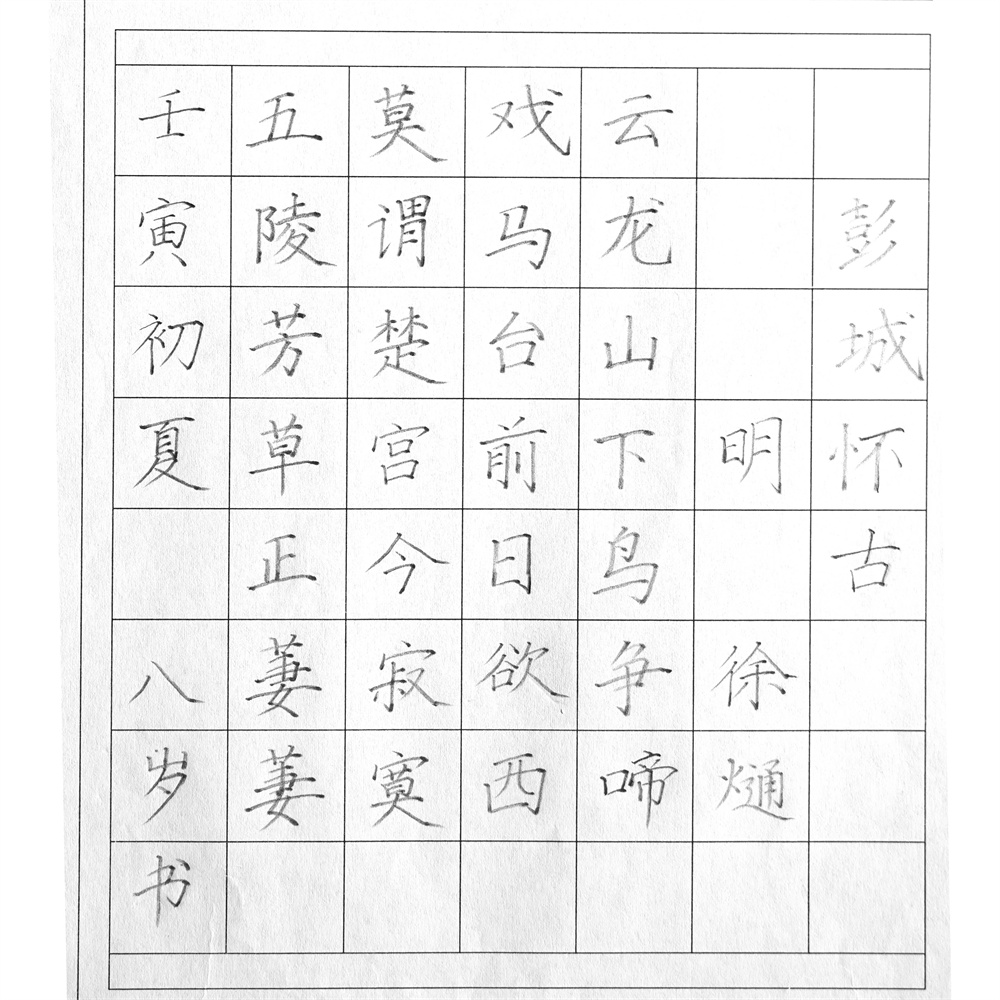 彭城怀古
明 徐熥
云龙山下鸟争啼
戏马台前日欲西
莫谓楚宫今寂寞
五陵芳草正萋萋
壬寅初夏 八岁书